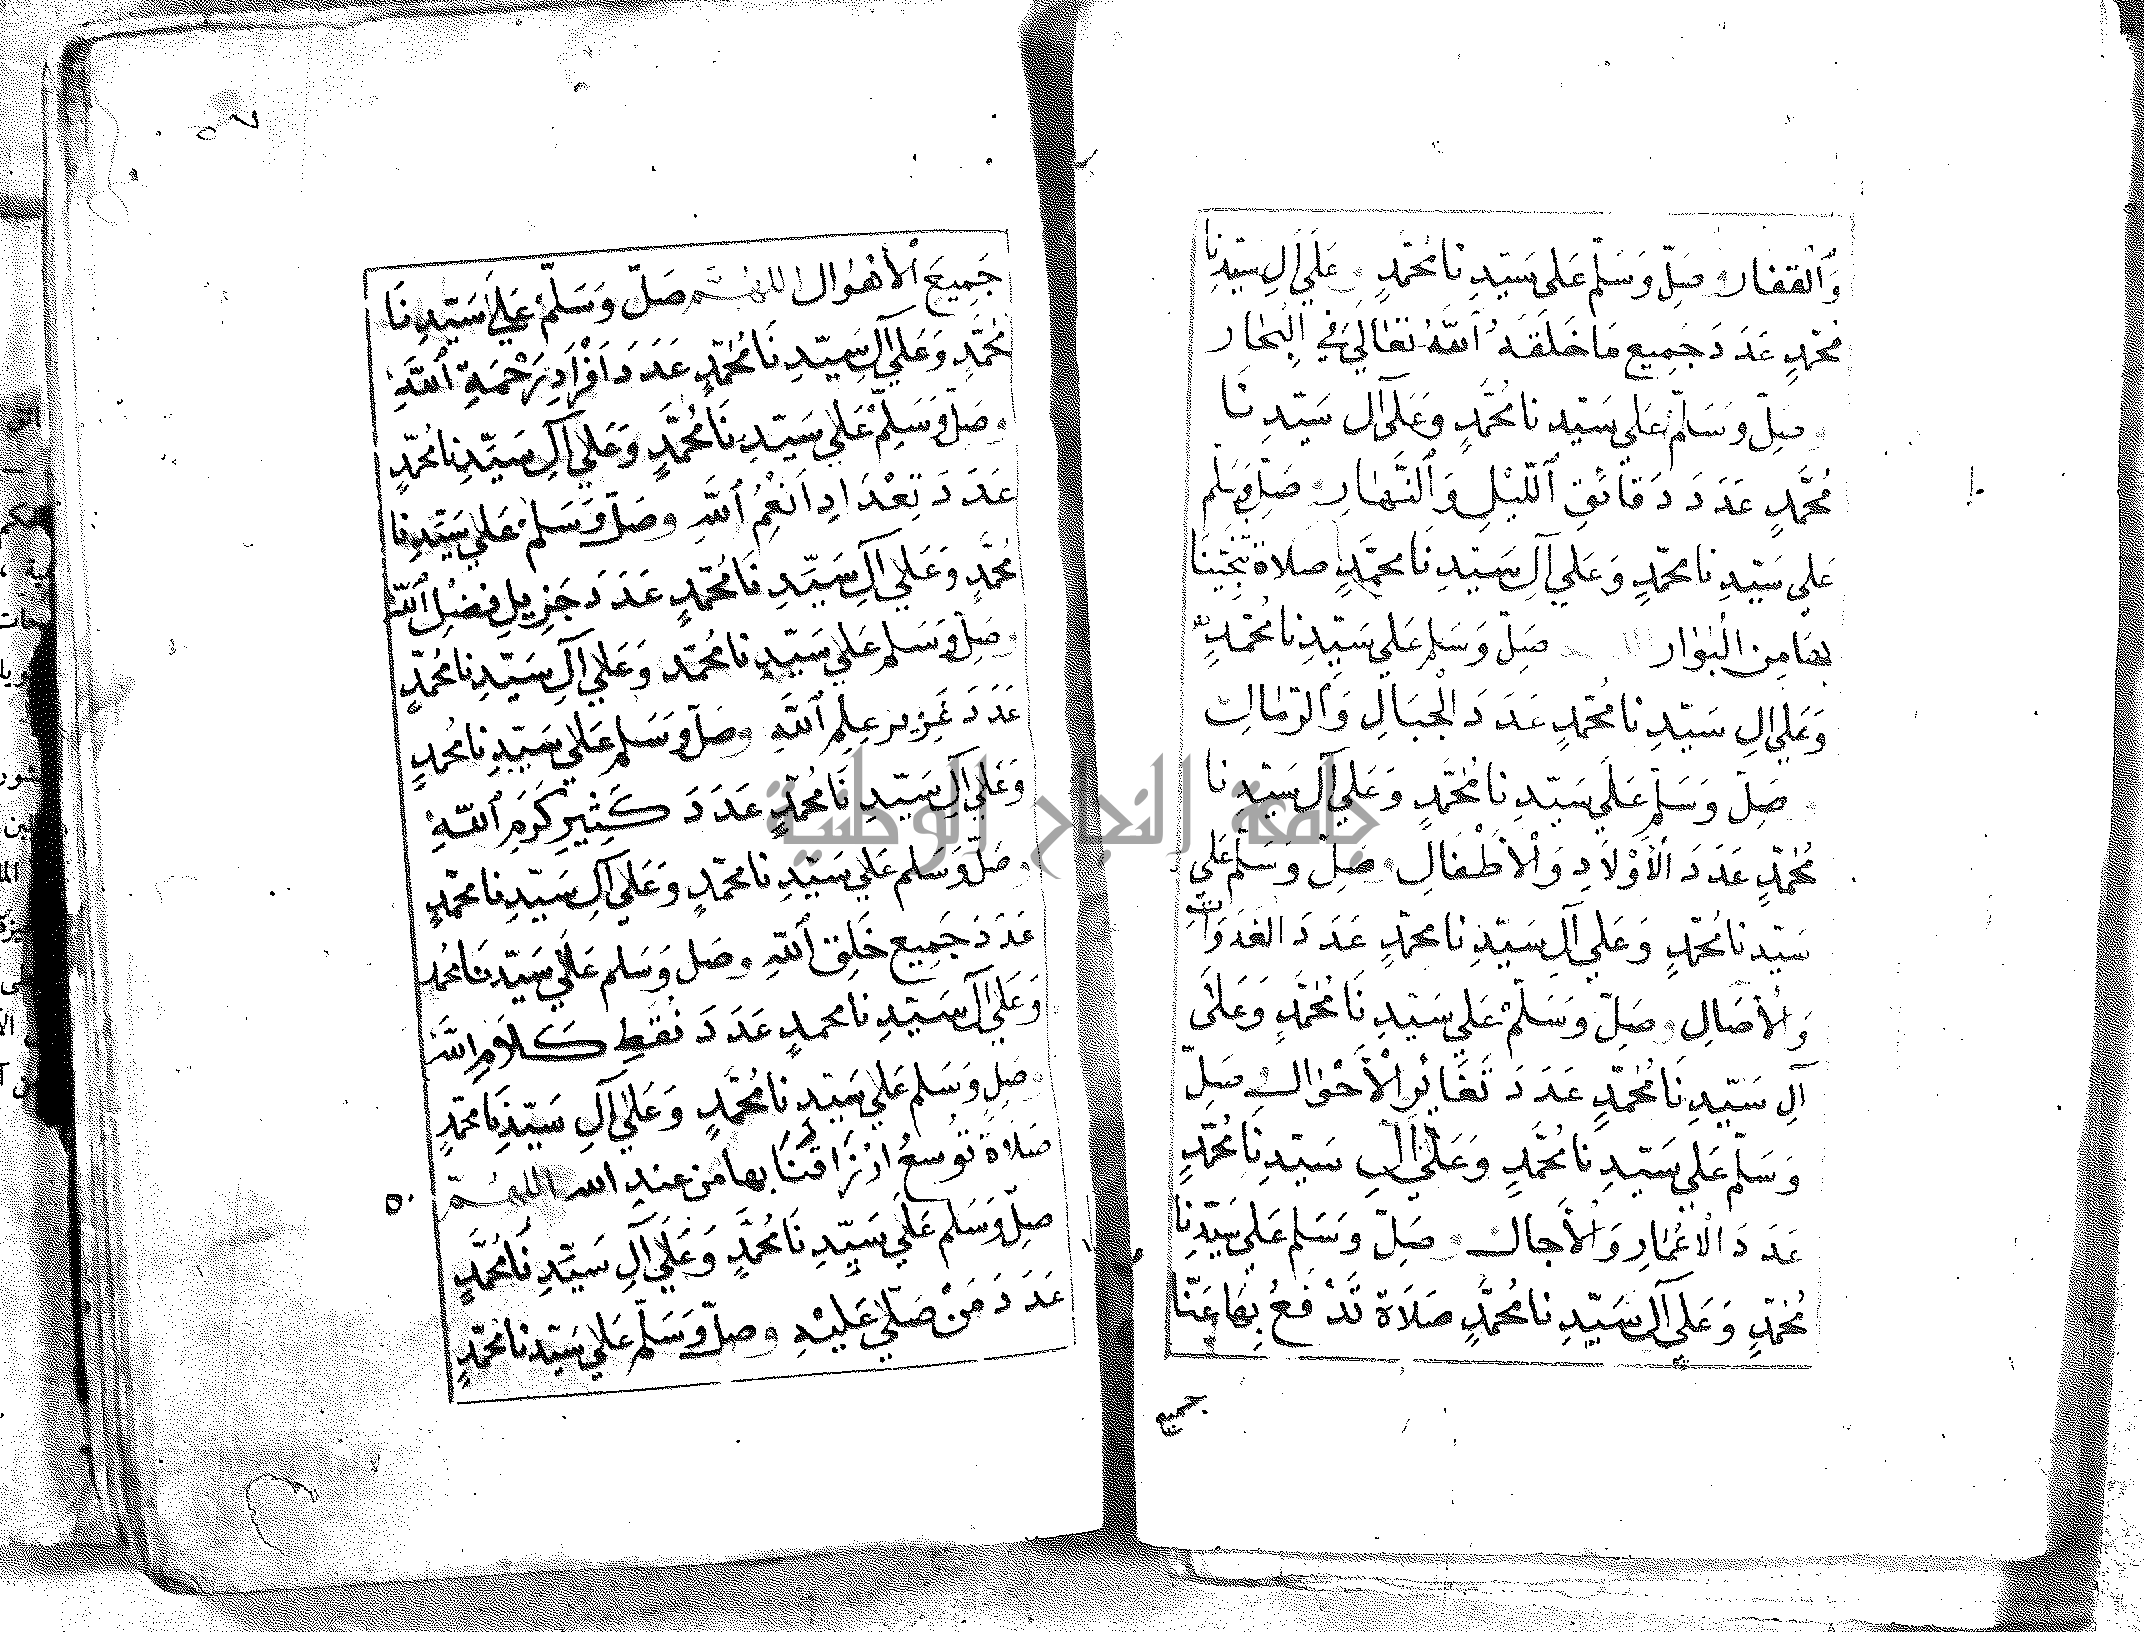 وَٱلْقِفَارِ ۝ صَلِّ وَسَلِّمْ عَلَى سَيِّدِنَا مُحَمَّدٍ وَعَلَى آلِ سَيِّدِنَا
مُحَمَّدٍ عَدَدَ جَمِيعِ مَا خَلَقَهُ ٱللَّهُ تَعَالَى فِي الْبِحَارِ
صَلِّ وَسَلِّمْ عَلَى سَيِّدِنَا مُحَمَّدٍ وَعَلَى آلِ سَيِّدِنَا
مُحَمَّدٍ عَدَدَ دَقَائِقِ ٱللَّيْلِ وَٱلنَّهَارِ صَلِّ وَسَلِّم
عَلَى سَيِّدِنَا مُحَمَّدٍ وَعَلَى آلِ سَيِّدِنَا مُحَمَّدٍ صَلَاةً تُنَجِّينَا
بِهَا مِنَ الْبَوَارِ صَلِّ وَسَلِّم عَلَى سَيِّدِنَا مُحَمَّدٍ
وَعَلَى آلِ سَيِّدِنَا مُحَمَّدٍ عَدَدَ الْجِبَالِ وَٱلرِّمَالِ
صَلِّ وَسَلِّمْ عَلَى سَيِّدِنَا مُحَمَّدٍ وَعَلَى آلِ سَيِّدِنَا
مُحَمَّدٍ عَدَدَ الْأَوْلَادِ وَالْأَطْفَالِ صَلِّ وَسَلِّمْ عَلَى
سَيِّدِنَا مُحَمَّدٍ وَعَلَى آلِ سَيِّدِنَا مُحَمَّدٍ عَدَدَ الْغَدَوَاتِ
وَالْأَصَالِ صَلِّ وَسَلِّمْ عَلَى سَيِّدِنَا مُحَمَّدٍ وَعَلَى
آلِ سَيِّدِنَا مُحَمَّدٍ عَدَدَ تَغَائُرِ الْأَحْوَالِ صَلِّ
وَسَلِّمْ عَلَى سَيِّدِنَا مُحَمَّدٍ وَعَلَى آلِ سَيِّدِنَا مُحَمَّدٍ
عَدَدَ الْاعْمَارِ وَالْأَجَالِ صَلِّ وَسَلِّم عَلَى سَيِّدِنَا
مُحَمَّدٍ وَعَلَى آلِ سَيِّدِنَا مُحَمَّدٍ صَلَاةً تَدْفَعُ بِهَا عَنَّا
جميع
جَمِيعَ ٱلْأَهْوَالِ اللهُمَّ صَلِّ وَسَلِّمْ عَلَى سَيِّدِنَا
مُحَمَّدٍ وَعَلَى آلِ سَيِّدِنَا مُحَمَّدٍ عَدَدَ أَفْرَادِ رَحْمَةِ ٱللَّهِ
صَلِّ وَسَلِّمْ عَلَى سَيِّدِنَا مُحَمَّدٍ وَعَلَى آلِ سَيِّدِنَا مُحَمَّدٍ
عَدَدَ تَعْدَادِ اَنْعُمِ ٱللَّهِ وصَلِّ وَسَلِّمْ عَلَى سَيِّدِنَا
مُحَمَّدٍ وَعَلَى آلِ سَيِّدِنَا مُحَمَّدٍ عَدَدَ جَزِيلِ فَضْلِ ٱللَّهِ
صَلِّ وَسَلِّم عَلَى سَيِّدِنَا مُحَمَّدٍ وَعَلَى آلِ سَيِّدِنَا مُحَمَّدٍ
عَدَدَ غَزِيرِ عِلْمِ ٱللَّهِ وصَلِّ وَسَلِّم عَلَى سَيِّدِنَا مُحَمَّدٍ
وَعَلَى آلِ سَيِّدِنَا مُحَمَّدٍ عَدَدَ كَثِيرِ كَرَمِ ٱللَّهِ
صَلِّ وَسَلِّم عَلَى سَيِّدِنَا مُحَمَّدٍ وَعَلَى آلِ سَيِّدِنَا مُحَمَّدٍ
عَدَدَ جَمِيعِ خَلْقِ ٱللَّهِ وصَلِّ وَسَلِّم عَلَى سَيِّدِنَا مُحَمَّد
وَعَلَى آلِ سَيِّدِنَا مُحَمَّدٍ عَدَدَ نُقَطِ كَلَامِ اللَّهِ
صَلِّ وَسَلِّم عَلَى سَيِّدِنَا مُحَمَّدٍ وَعَلَى آلِ سَيِّدِنَا مُحَمَّدٍ
صَلَاةً تُوسِعُ ارْزَاقَنَا بِهَا مِنْ عِنْدِ الله اللهُمَّ
صَلِّ وَسَلِّم عَلَى سَيِّدِنَا مُحَمَّدٍ وَعَلَى آلِ سَيِّدِنَا مُحَمَّدٍ
عَدَدَ مَنْ صَلَّى عَلَيْهِ وصَلِّ وَسَلِّمْ عَلَى سَيِّدِنَا مُحَمَّدٍ
جامعة النجاح الوطنية